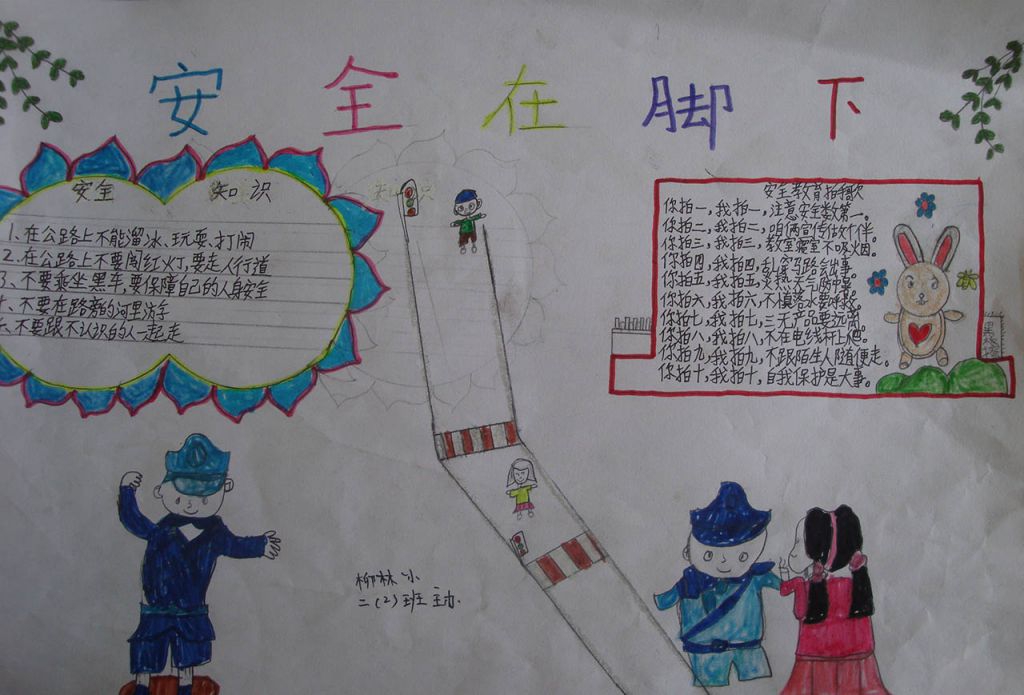 安全在脚下
安全 知识
1、在公路上不能溜冰、玩耍、打闹
2、在公路上不要闯红灯,要走人行道
3、不要乘坐黑车,要保障自己的人身安全
不要在路旁的河里游手
不要跟不认识的人一起走
安全教育拍手歌
你拍一,我拍一,注意安全数第一。
你拍二,我拍二,咱俩宣传做个伴。
你拍三,我拍三,教室寝室不吸烟。
你拍四,我拍四,乱穿马路会出事。
你拍五,我拍五,炎热天气防中暑。
你拍六,我拍六,不慎落水要呼救。
你拍七,我拍七,三无产品要远离。
你拍八,我拍八,不在电线杆上爬。
你拍九,我拍九,不跟陌生人随便走。
你拍十,我拍十,自我保护是大事。
柳林小
二(2)班